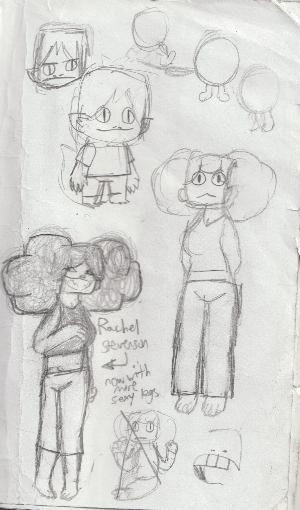 Rachel
stevenson
now with
more
sexy legs